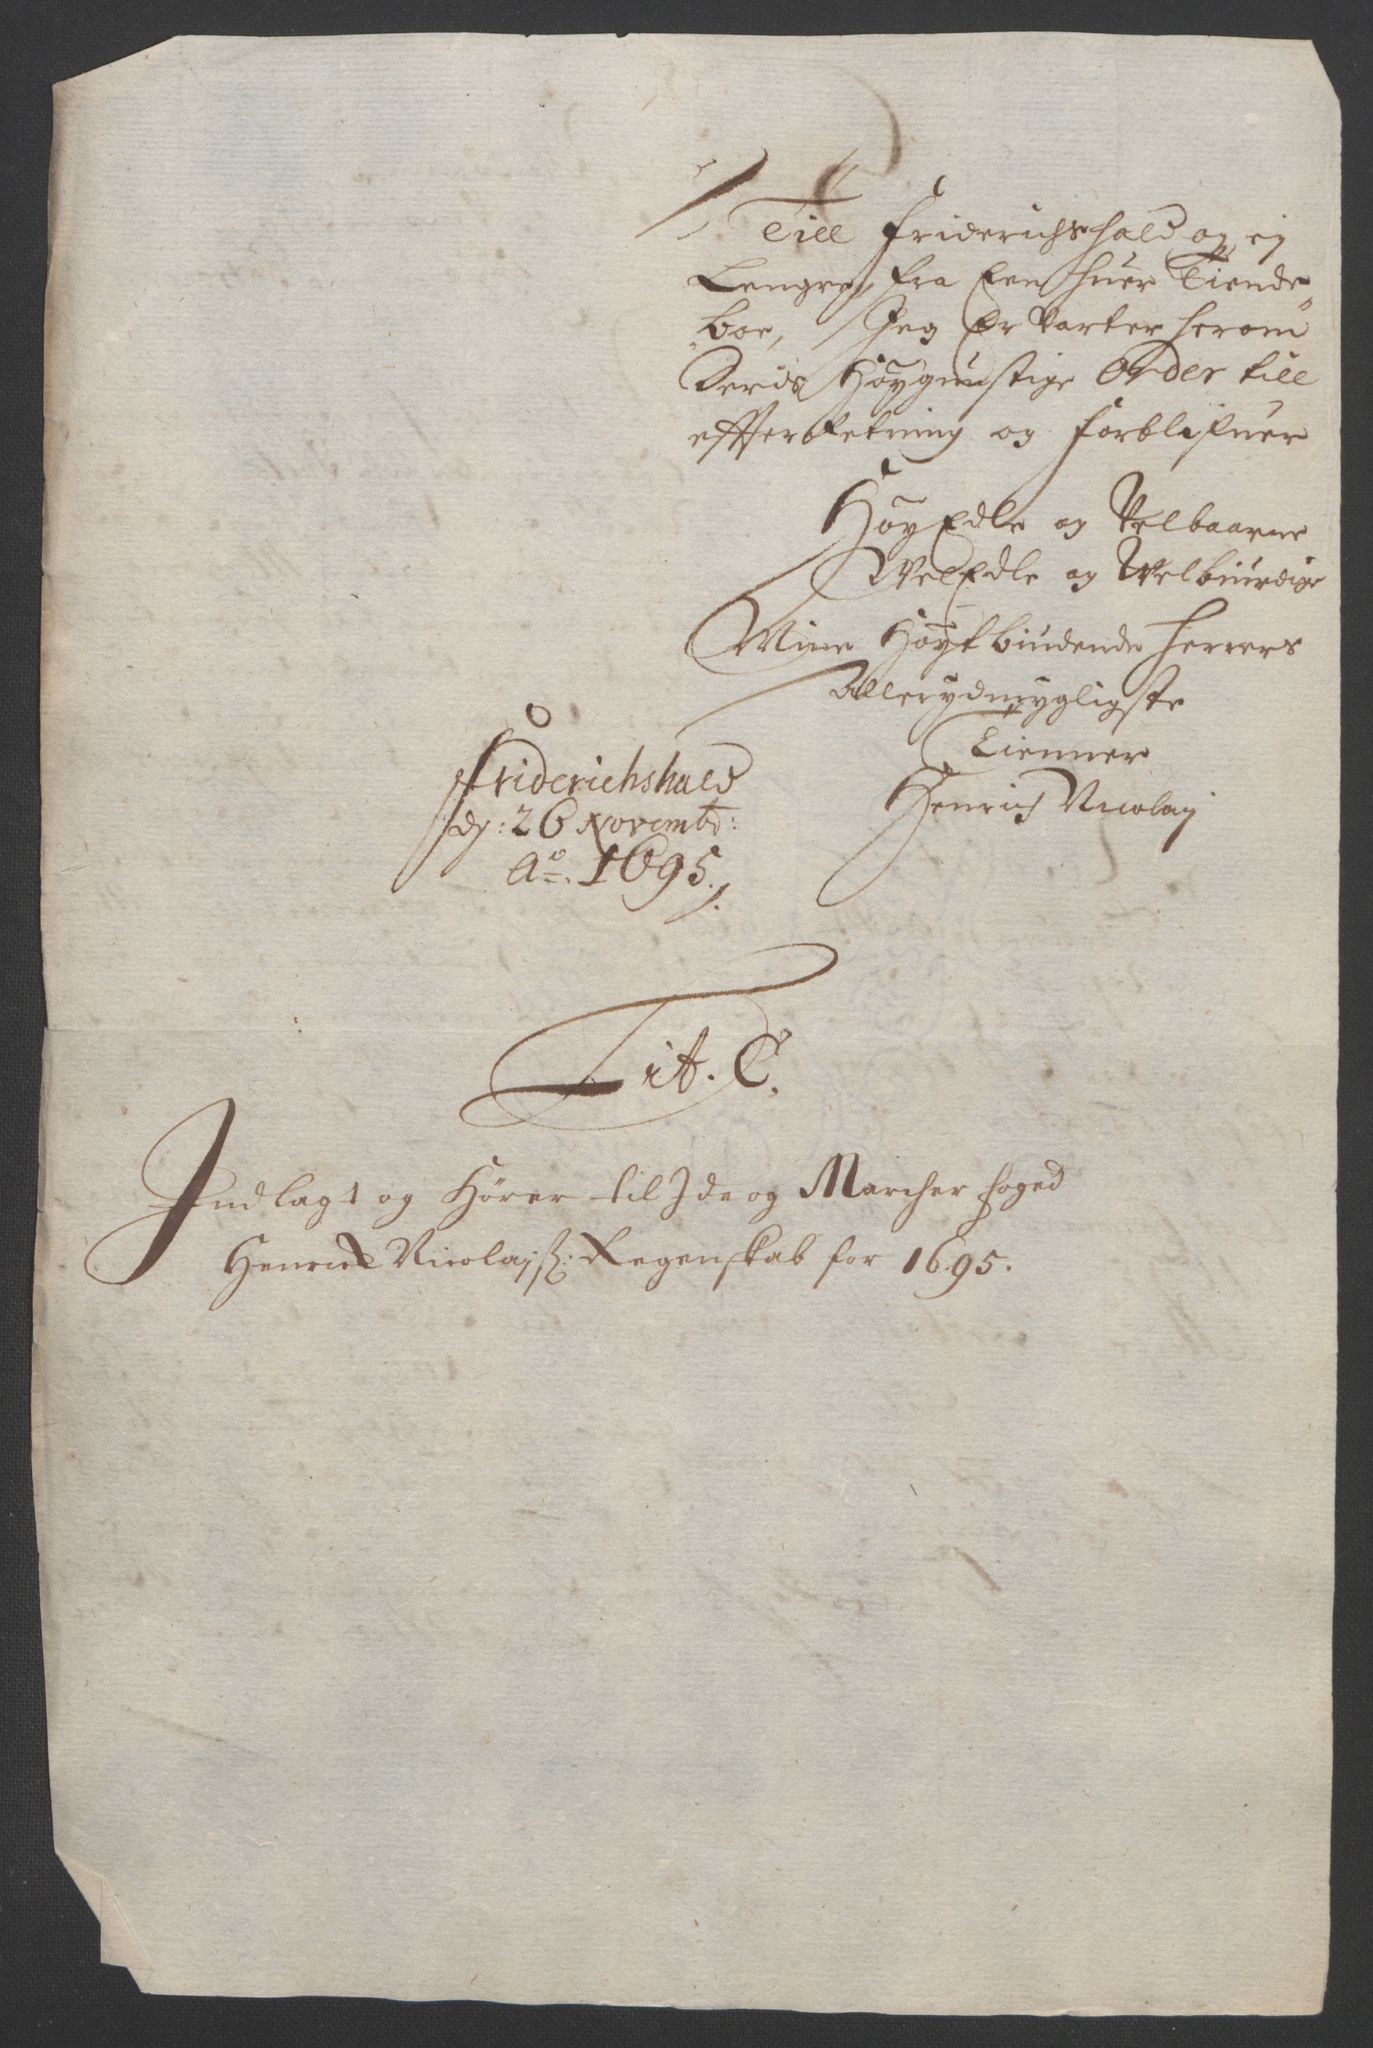 Till Friderichshald og ej
Lengre, fra Een huer Tiende
boe, Jeg Er Varter herom
Deris Høygunstige Order till
effterRetning og forblifuer
HøyEdle og Velbaarne
VelEdle og Welbiurdige
Mine Høyt biudende herrers
Allerydmygligste
Tienner
Henrich Nicolaj
Friderichshald
dj: 26 Novembr:
Ao. 1695.
Lit. C.
Indlagt og Hører til Ide og Marcher foged
Henrich Nicolajss: Regenskab for 1695.